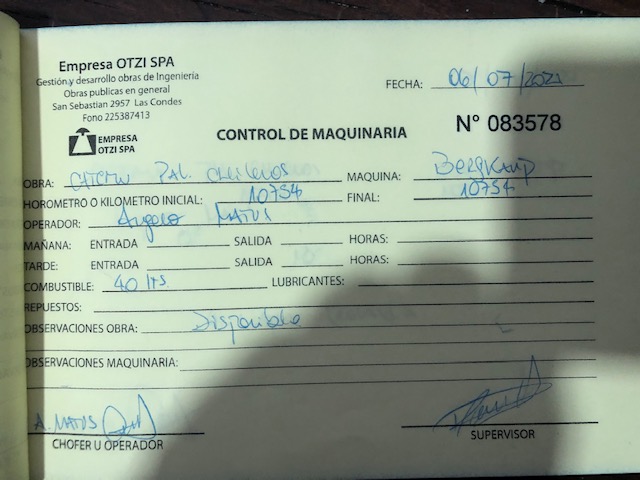 Empresa OTZI SPA
Gestión y desarrollo obras de Ingeniería
Obras publicas en general
San Sebastian 2957 Las Condes
Fono 225387413
FECHA: 06/07/2021
EMPRESA
OTZI SPA
CONTROL DE MAQUINARIA
N° 083578
OBRA: MAQUINA:
HOROMETRO O KILOMETRO INICIAL: 10754 FINAL: 10754
OPERADOR: Angelo Matus
MAÑANA: ENTRADA SALIDA HORAS:
TARDE: ENTRADA SALIDA HORAS:
COMBUSTIBLE: 40 lts LUBRICANTES:
REPUESTOS:
OBSERVACIONES OBRA: Disponible
OBSERVACIONES MAQUINARIA:
A. Matus
CHOFER U OPERADOR
SUPERVISOR